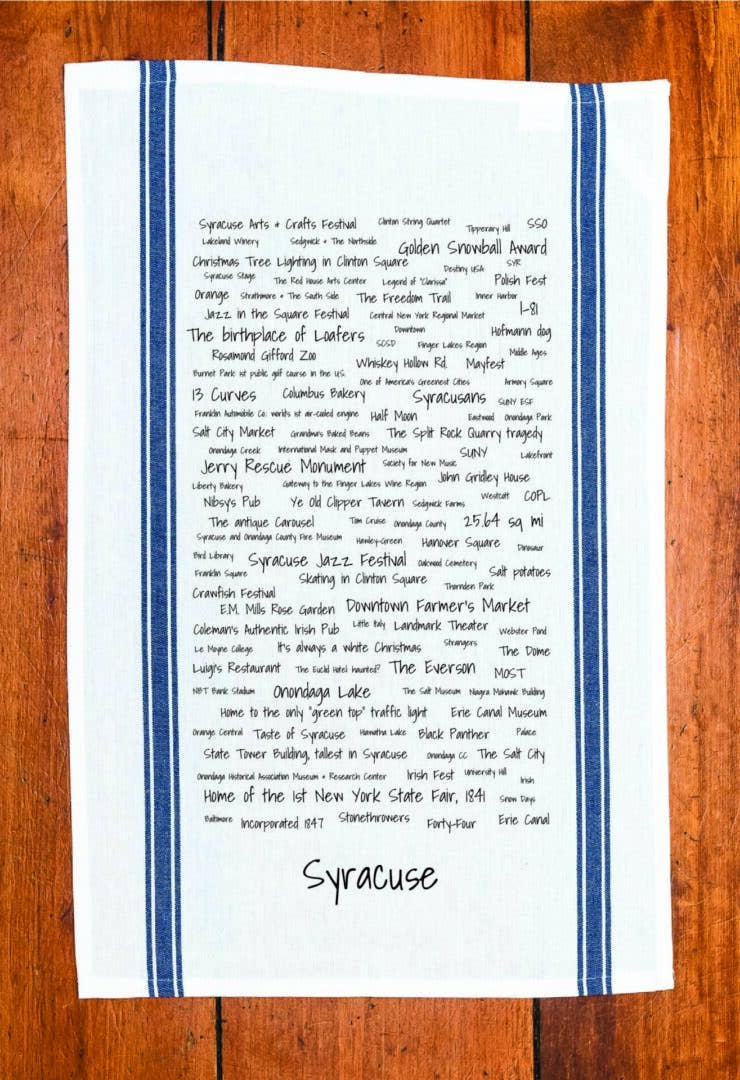 Syracuse Arts & Crafts Festival Clinton String Quartet Tipperary Hill SSO
Lakeland Winery Sedgwick & The Northside Golden Snowball Award
Christmas Tree Lighting in Clinton Square Destiny USA SYR
Syracuse Stage The Red House Arts Center Legend of "Clarissa" Polish Fest
Orange Strathmore & The South Side The Freedom Trail Inner Harbor
Jazz in the Square Festival Central New York Regional Market I-81
The birthplace of Loafers Downtown Hofmann dog
SCSD Finger Lakes Region
Rosamond Gifford Zoo Whiskey Hollow Rd. Mayfest Middle Ages
Burnet Park 1st public golf course in the U.S. One of America's Greenest Cities Armory Square
13 Curves Columbus Bakery Syracusans SUNY ESF
Franklin Automobile Co: worlds 1st air-cooled engine Half Moon Eastwood Onondaga Park
Salt City Market Grandma's Baked Beans The Split Rock Quarry tragedy
Onondaga Creek International Mask and Puppet Museum SUNY Lakefront
Jerry Rescue Monument Society for New Music
Liberty Bakery Gateway to the Finger Lakes Wine Region John Gridley House
Nibsy's Pub Ye Old Clipper Tavern Sedgwick Farms Westcott COPL
The antique Carousel Tom Cruise Onondaga County 25.64 sq mi
Syracuse and Onondaga County Fire Museum Hawley-Green Hanover Square Dinosaur
Bird Library Syracuse Jazz Festival Oakwood Cemetery
Franklin Square Skating in Clinton Square Salt potatoes
Crawfish Festival Thornden Park
E.M. Mills Rose Garden Downtown Farmer's Market
Coleman's Authentic Irish Pub Little Italy Landmark Theater Webster Pond
Le Moyne College It's always a white Christmas Strangers The Dome
Luigi's Restaurant The Euclid Hotel haunted? The Everson MOST
NBT Bank Stadium Onondaga Lake The Salt Museum Niagra Mohawk Building
Home to the only "green top" traffic light Erie Canal Museum
Orange Central Taste of Syracuse Hiawatha Lake Black Panther Palace
State Tower Building, tallest in Syracuse Onondaga CC The Salt City
Onondaga Historical Association Museum & Research Center Irish Fest University Hill Irish
Home of the 1st New York State Fair, 1841 Snow Days
Baltimore Incorporated 1847 Stonethrowers Forty-Four Erie Canal
Syracuse